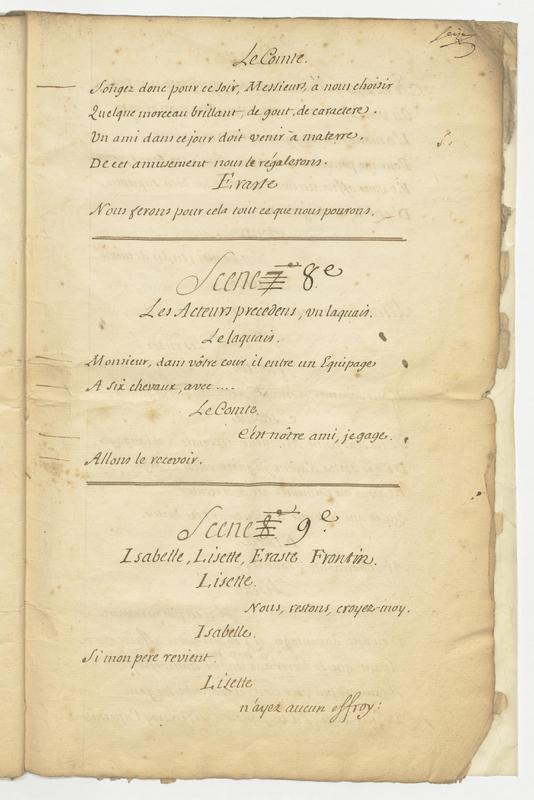 seize
Le Comte.
Songez donc pour ce soir, Messieurs, à nous choisir
Quelque morceau brillant, de gout, de caractere.
Un ami dans ce jour doit venir à ma terre,
De cet amusement nous le régalerons.
Eraste
Nous ferons pour cela tout ce que nous pourons.
Scene 7e 8e
Les Acteurs precedens, un laquais.
Le laquais.
Monsieur, dans vôtre cour il entre un Equipage
A six chevaux, avec ....
Le Comte.
C'est nôtre ami, je gage.
Allons le recevoir.
Scene 8e 9e.
Isabelle, Lisette, Eraste Frontin.
Lisette.
Nous, restons, croyez-moy.
Isabelle.
Si mon pere revient.
Lisette
n'ayez aucun effroy: